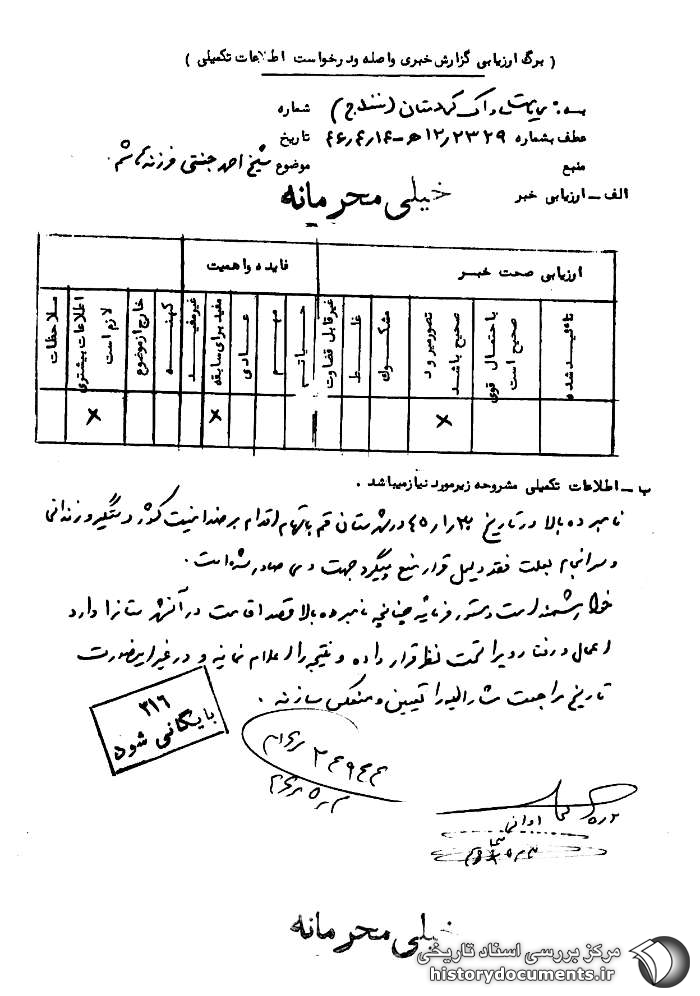 ( برگ ارزیابی گزارش خبری واصله ودرخواست اطلاعات تکمیلی )
به : ریاست ساواک کردستان (سنندج) شماره
عطف بشماره ۱۲٫۲۳۲۹ ه‍ - ۴۶٫۴٫۱۴ تاریخ
منبع موضوع شیخ احمد جنتی فرزند هاشم
الف - ارزیابی خبر
خیلی محرمانه
ارزیابی صحت خبر
فایده واهمیت
تائید شده
با احتمال قوی صحیح است
تصور میرود صحیح باشد
مشکوك
غلط
غیرقابل قضاوت
حیاتی
مهم
عادی
مفید برای سابقه
غیرمفید
کهنه
خارج ازموضوع
اطلاعات بیشتری لازم است
ملاحظات
x x x
ب - اطلاعات تکمیلی مشروحه زیرمورد نیازمیباشد .
نامبرده بالا در تاریخ درشهرستان قم باتهام اقدام برضد امنیت کشور دستگیر و زندانی
و سرانجام بعلت فقد دلیل قرار منع پیگرد جهت وی صادر شده است .
خواهشمند است دستور فرمائید چنانچه نامبرده بالا قصد اقامت در آن شهرستان را دارد
اعمال و رفتار ویرا تحت نظر قرار داده و نتیجه را اعلام نمایند و در غیر اینصورت
تاریخ مراجعت مشارالیه را تعیین و منعکس سازند .
۳۱۶
بایگانی شود
خیلی محرمانه
مرکز بررسی اسناد تاریخی
historydocuments.ir